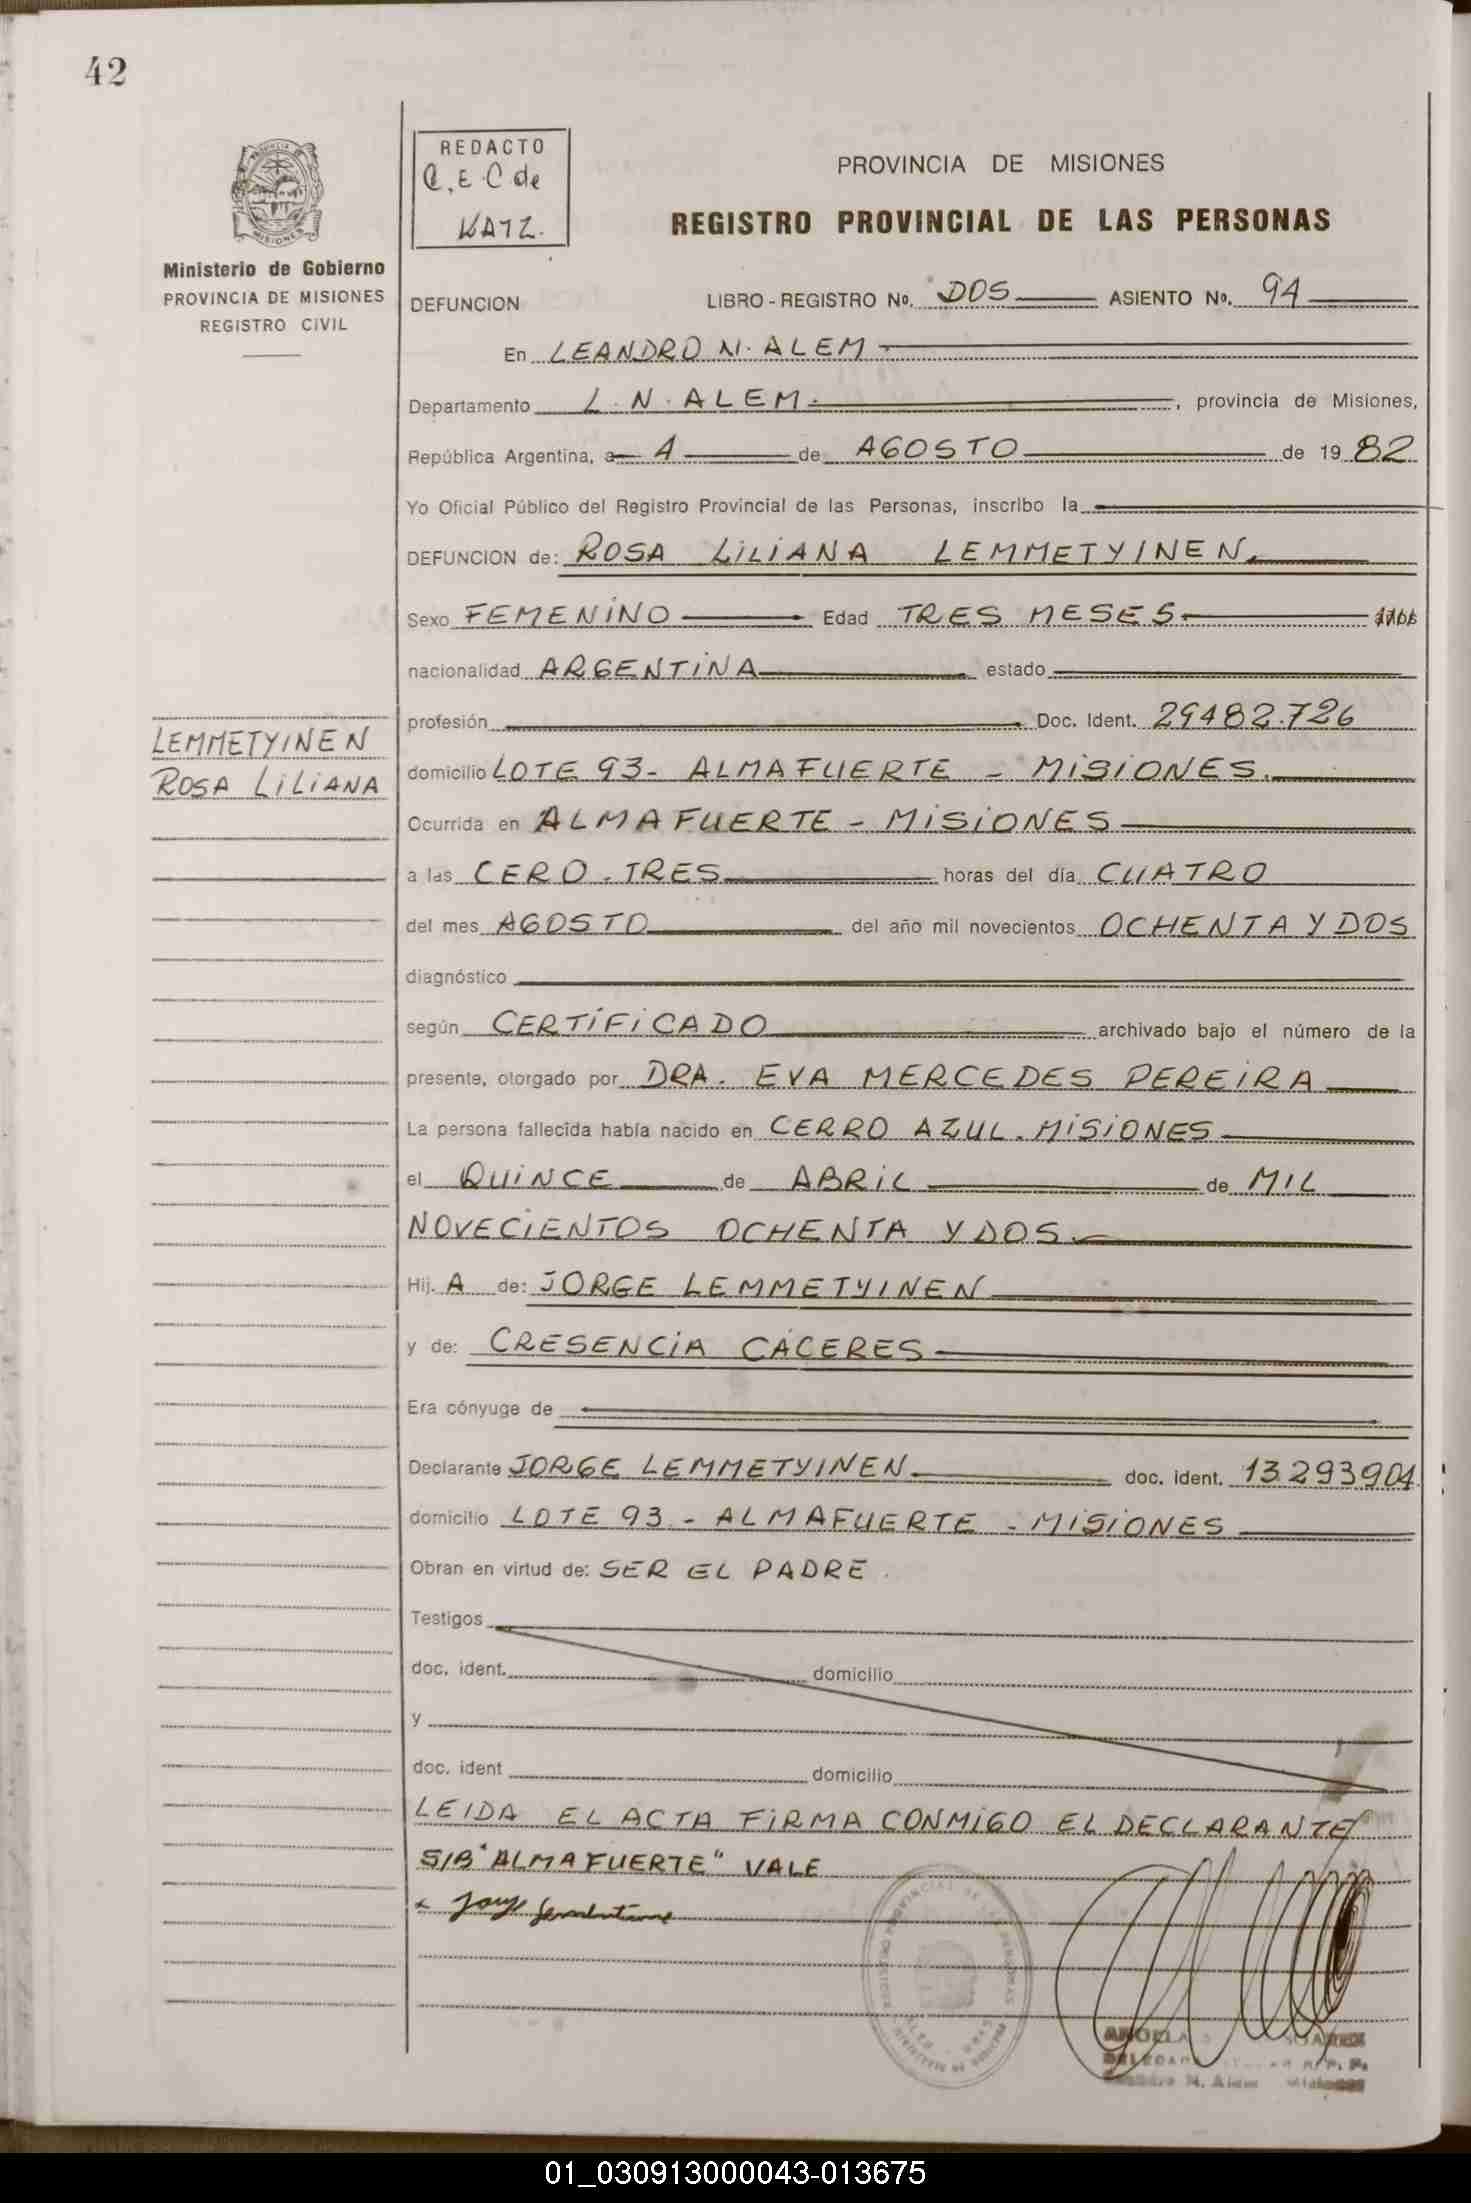 42
REDACTO
C.E.C de
KATZ.
PROVINCIA DE MISIONES
REGISTRO PROVINCIAL DE LAS PERSONAS
Ministerio de Gobierno
PROVINCIA DE MISIONES
REGISTRO CIVIL
DEFUNCION LIBRO - REGISTRO Nº. DOS ASIENTO Nº. 94
En LEANDRO N. ALEM
Departamento L. N. ALEM. , provincia de Misiones,
República Argentina, a 4 de AGOSTO de 19 82
Yo Oficial Público del Registro Provincial de las Personas, inscribo la
DEFUNCION de: ROSA LILIANA LEMMETYINEN.
Sexo FEMENINO Edad TRES MESES
nacionalidad ARGENTINA estado
profesión Doc. Ident. 29482.726
LEMMETYINEN
ROSA LILIANA
domicilio LOTE 93 - ALMAFUERTE - MISIONES.
Ocurrida en ALMAFUERTE - MISIONES
a las CERO . TRES horas del día CUATRO
del mes AGOSTO del año mil novecientos OCHENTA Y DOS
diagnóstico
según CERTIFICADO archivado bajo el número de la
presente, otorgado por DRA. EVA MERCEDES PEREIRA
La persona fallecida había nacido en CERRO AZUL . MISIONES
el QUINCE de ABRIL de MIL
NOVECIENTOS OCHENTA Y DOS
Hij. A de: JORGE LEMMETYINEN
y de: CRESENCIA CÁCERES
Era cónyuge de
Declarante JORGE LEMMETYINEN doc. ident. 13293904
domicilio LOTE 93 - ALMAFUERTE - MISIONES
Obran en virtud de: SER EL PADRE .
Testigos
doc. ident. domicilio
y
doc. ident domicilio
LEIDA EL ACTA FIRMA CONMIGO EL DECLARANTE
S/B "ALMAFUERTE" VALE
01_030913000043-013675